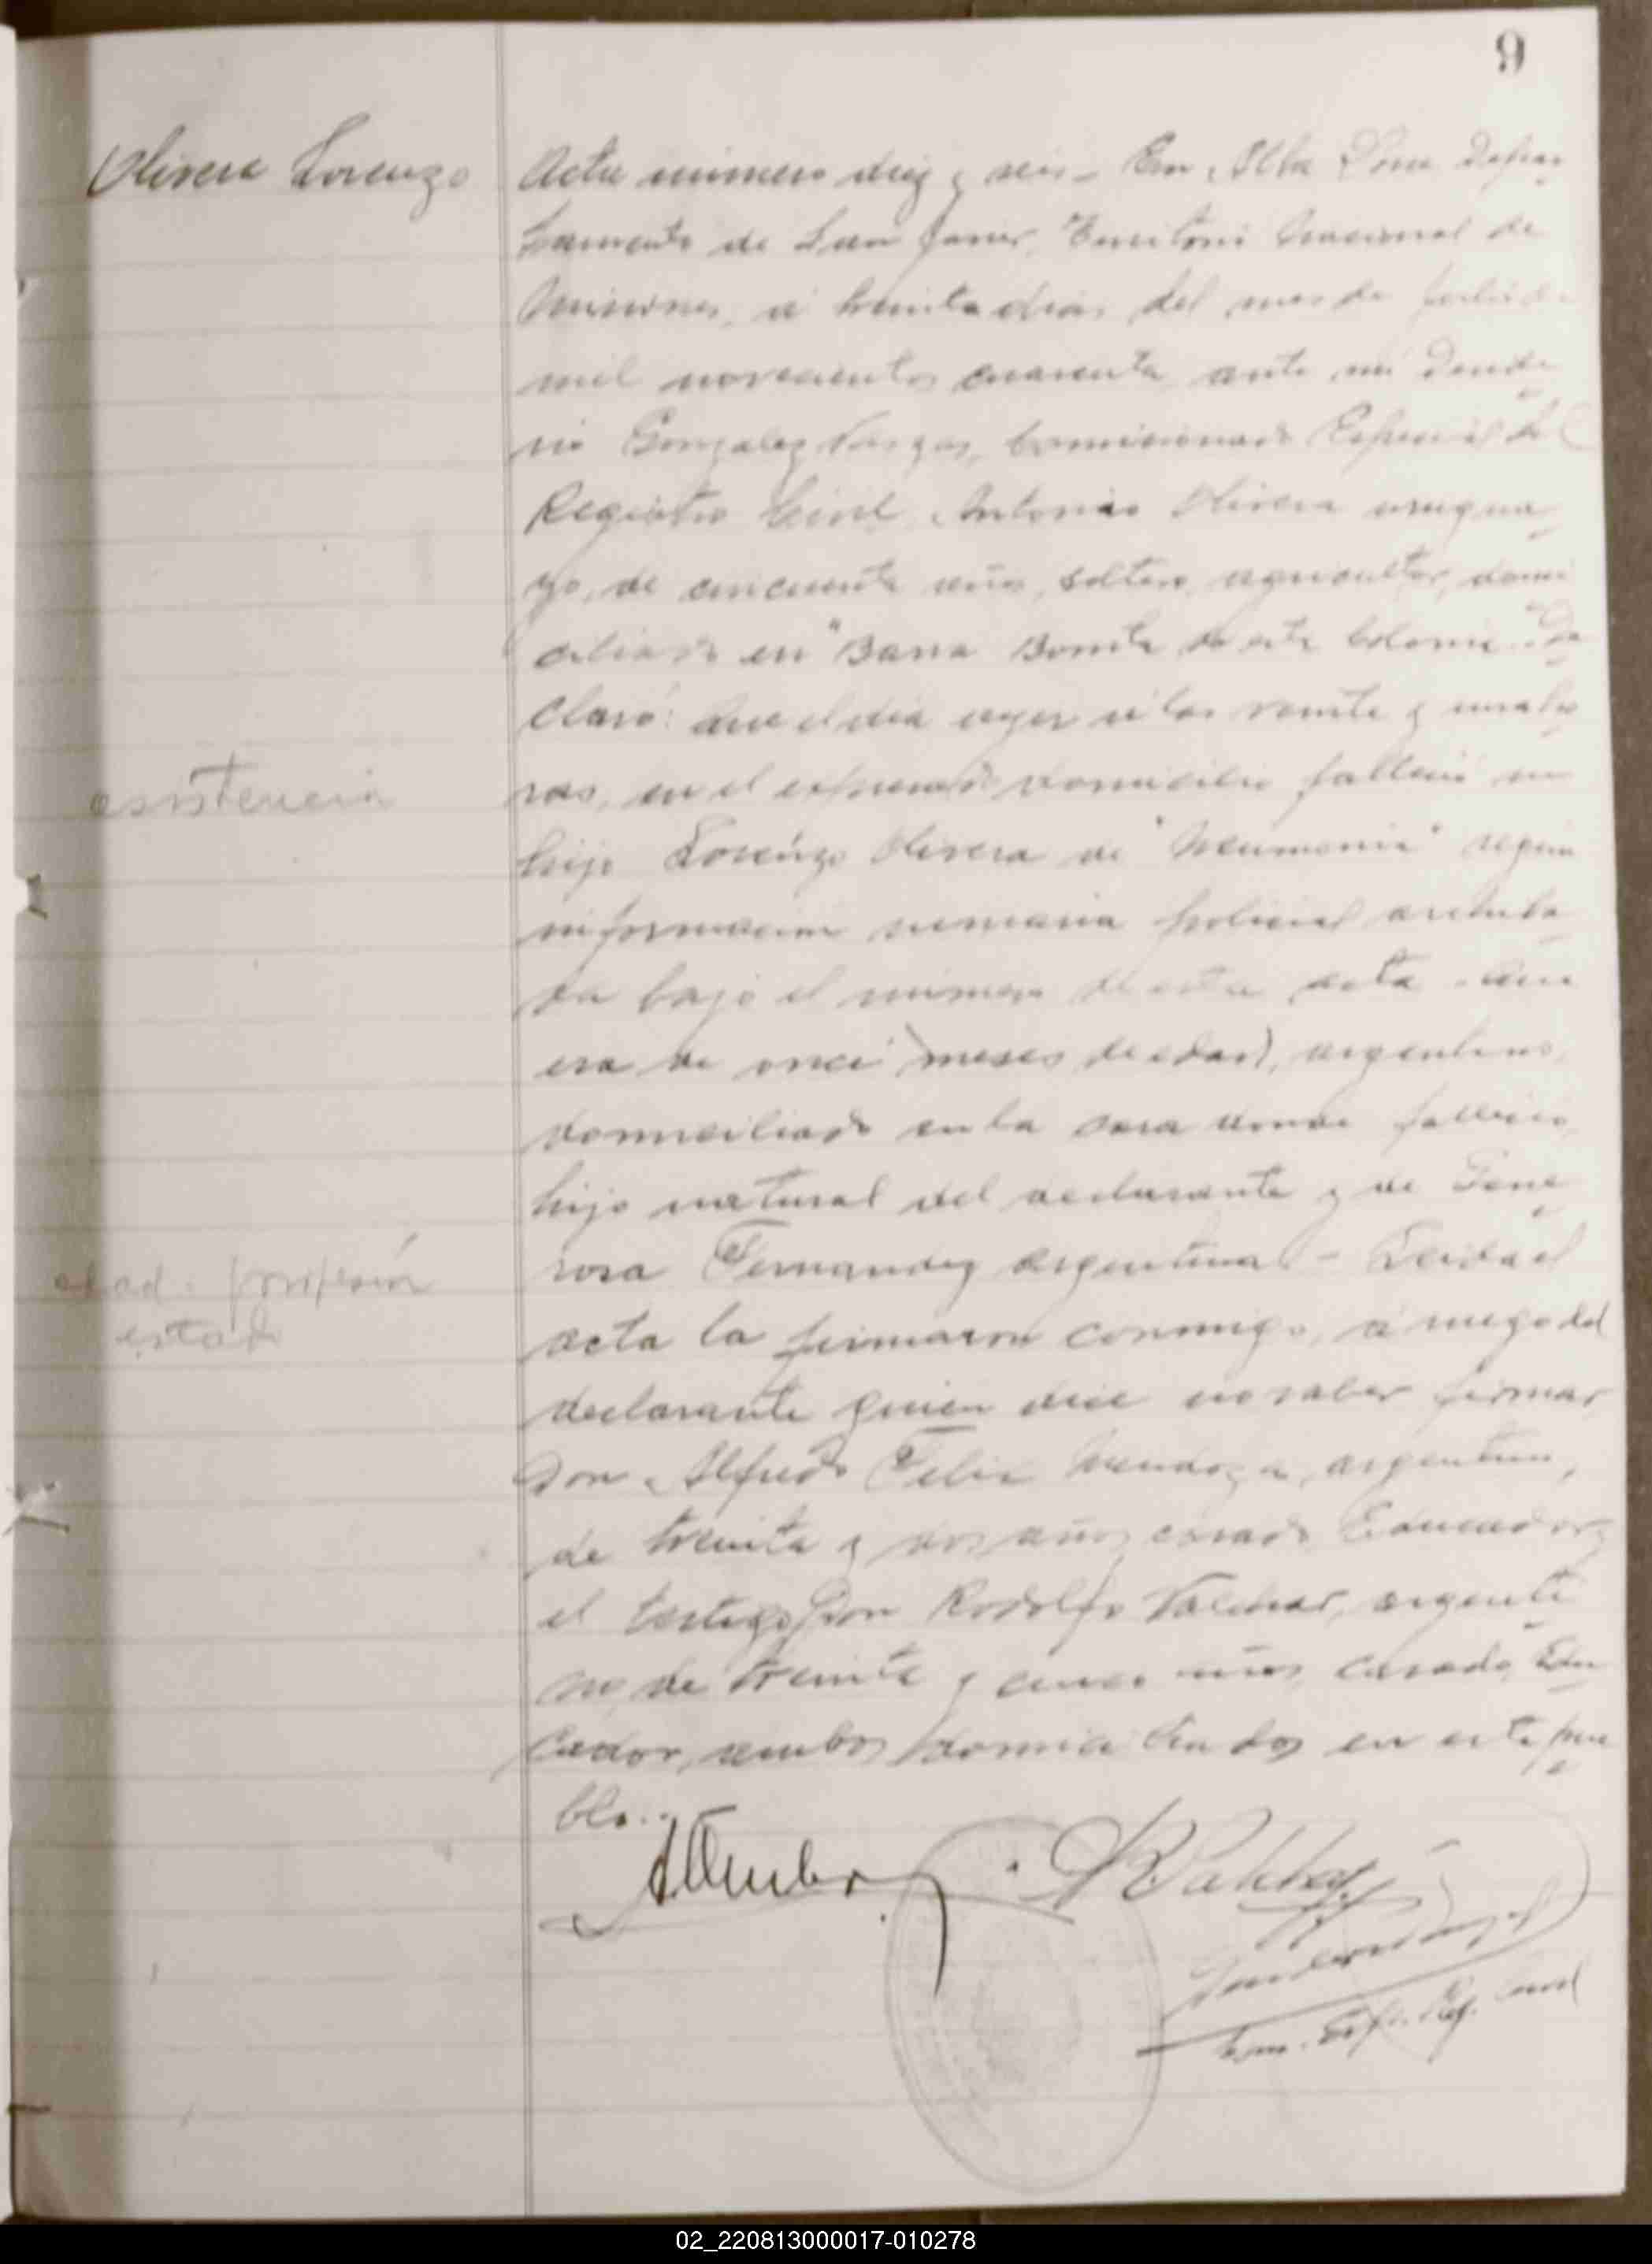 9
Olivera Lorenzo
Acta número diez y seis - En Alba Posse Depar
tamento de San Javier, Territorio Nacional de
Misiones, a treinta dias del mes de julio de
mil novecientos cuarenta, ante mi
Gonzalez Vargas, Comisionado Especial del
Registro Civil, Antonio Olivera urugua
yo, de cincuenta años, soltero, agricultor, domi
ciliado en "Barra Bonita de esta Colonia. De
claró: Que el dia ayer a las veinte y una ho
ras, en el expresado domicilio falleció su
asistencia
hijo Lorenzo Olivera de "Neumonia" según
informacion sumaria policial archiva
da bajo el número de esta acta. Que
era de once meses de edad, argentino,
domiciliado en la casa donde falleció,
hijo natural del declarante y de Gene
rosa Fernandez argentina - Leida el
edad. profesión
estado
acta la firmaron conmigo, a ruego del
declarante quien dice no saber firmar
Don Alfredo Felix Mendoza, argentino,
de treinta y dos años casado Educador y
el testigo Don Rodolfo argenti
no, de treinta y cinco años, casado, Edu
cador, ambos domiciliados en este pue
blo.
Com. Esp. Reg. Civil
02_220813000017-010278